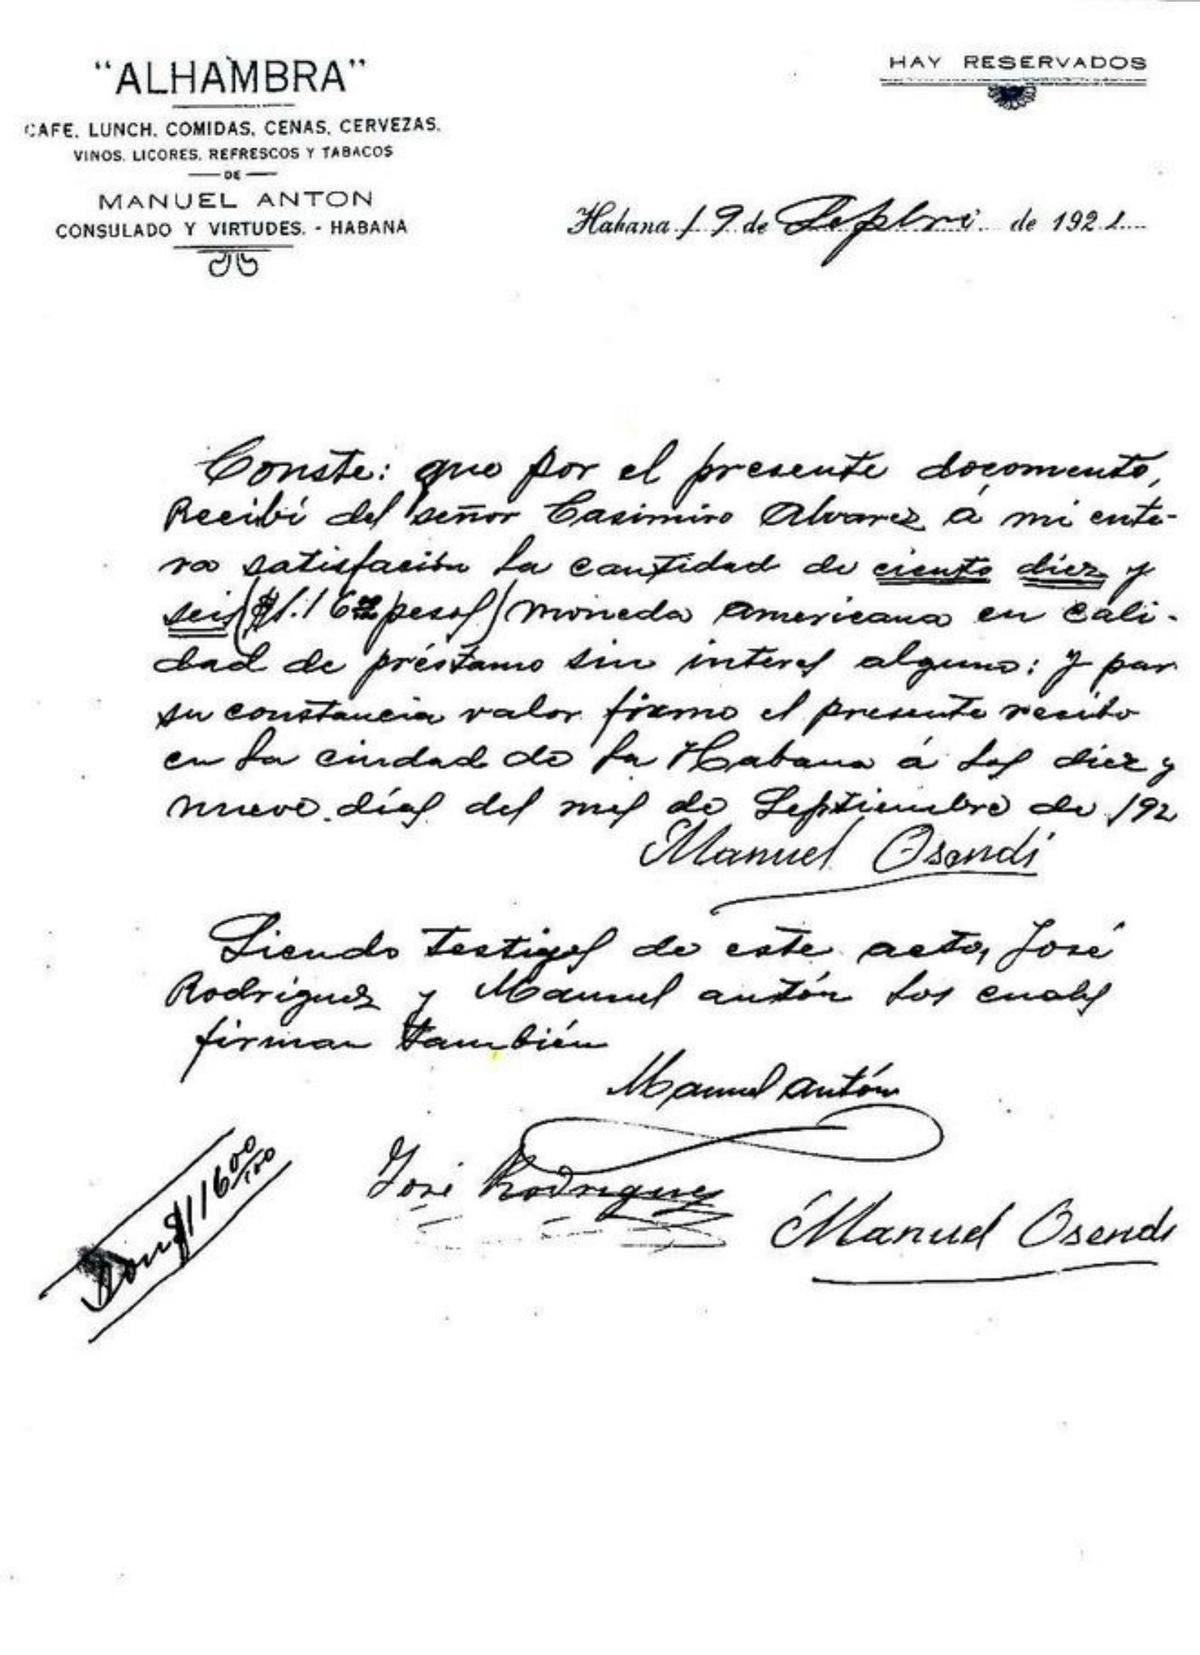 "ALHAMBRA"
CAFE, LUNCH, COMIDAS, CENAS, CERVEZAS,
VINOS, LICORES, REFRESCOS Y TABACOS
DE
MANUEL ANTON
CONSULADO Y VIRTUDES. - HABANA
HAY RESERVADOS
Habana 19 de Sepbre de 1921
Conste: que por el presente documento,
Recibí del señor Casimiro Alvarez á mi ente-
ra satisfación la cantidad de ciento diez y
seis ($116 pesos) moneda americana en cali-
dad de préstamo sin interes alguno: y par
su constancia valor firmo el presente recibo
en la ciudad de la Habana á los diez y
nueve días del mes de Septiembre de 192
Manuel Osendi
Siendo testigos de este acto, José
Rodriguez y Manuel antón los cuales
firman también
Manuel antón
José Rodriguez
Manuel Osendi
$116 00/100